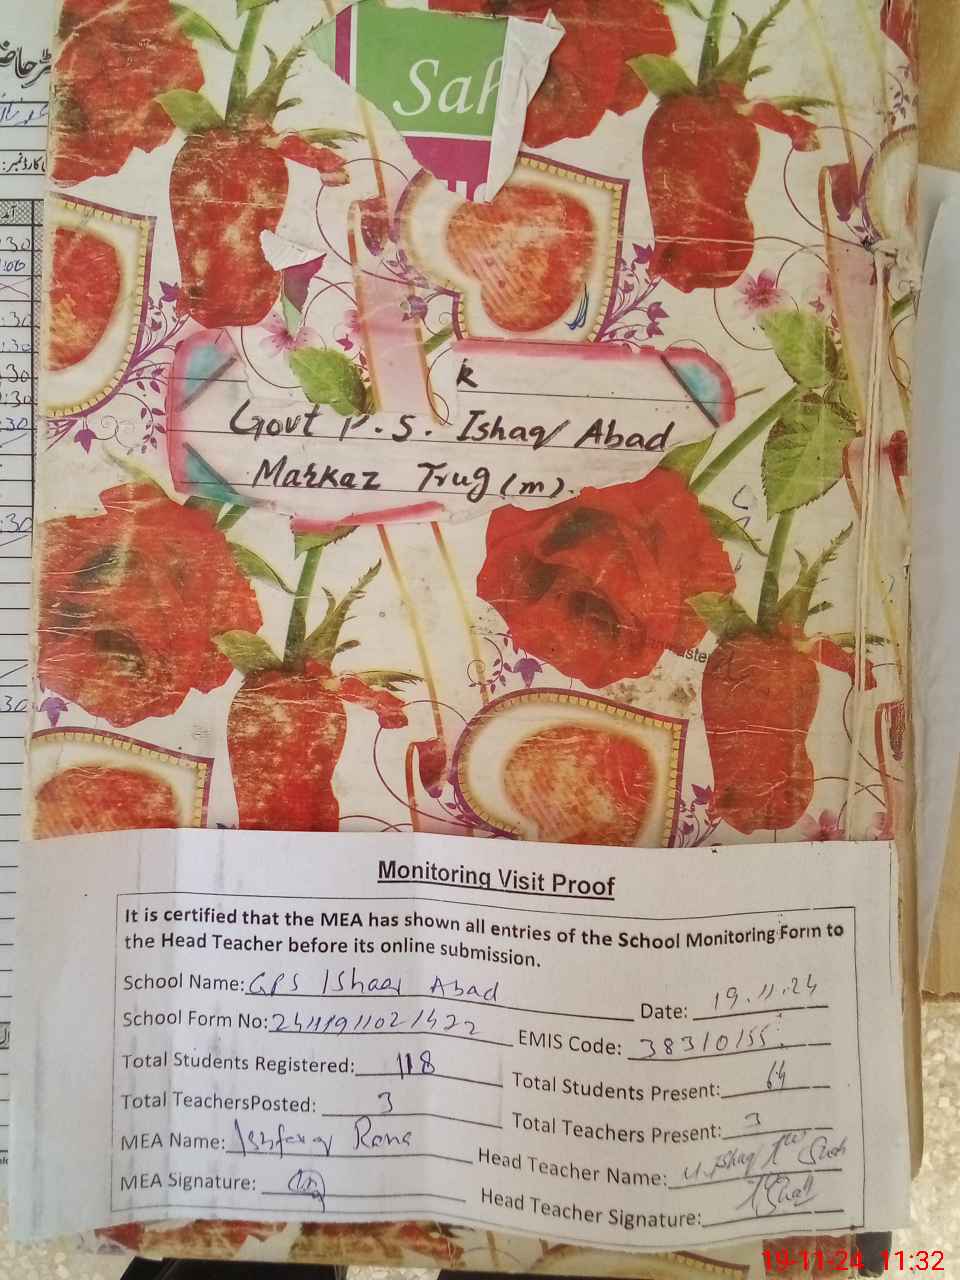 Sah
k
Govt P.S. Ishaq Abad
Markaz Trug (m).
Monitoring Visit Proof
It is certified that the MEA has shown all entries of the School Monitoring Form to
the Head Teacher before its online submission.
School Name: GPS Ishaq Abad
Date: 19.11.24
School Form No: 24111911021422
EMIS Code: 38310155
Total Students Registered: 118
Total Students Present: 64
Total TeachersPosted: 3
Total Teachers Present: 3
MEA Name: Ishfaq Rana
Head Teacher Name: M. Ishaq
MEA Signature:
Head Teacher Signature:
19-11-24 11:32